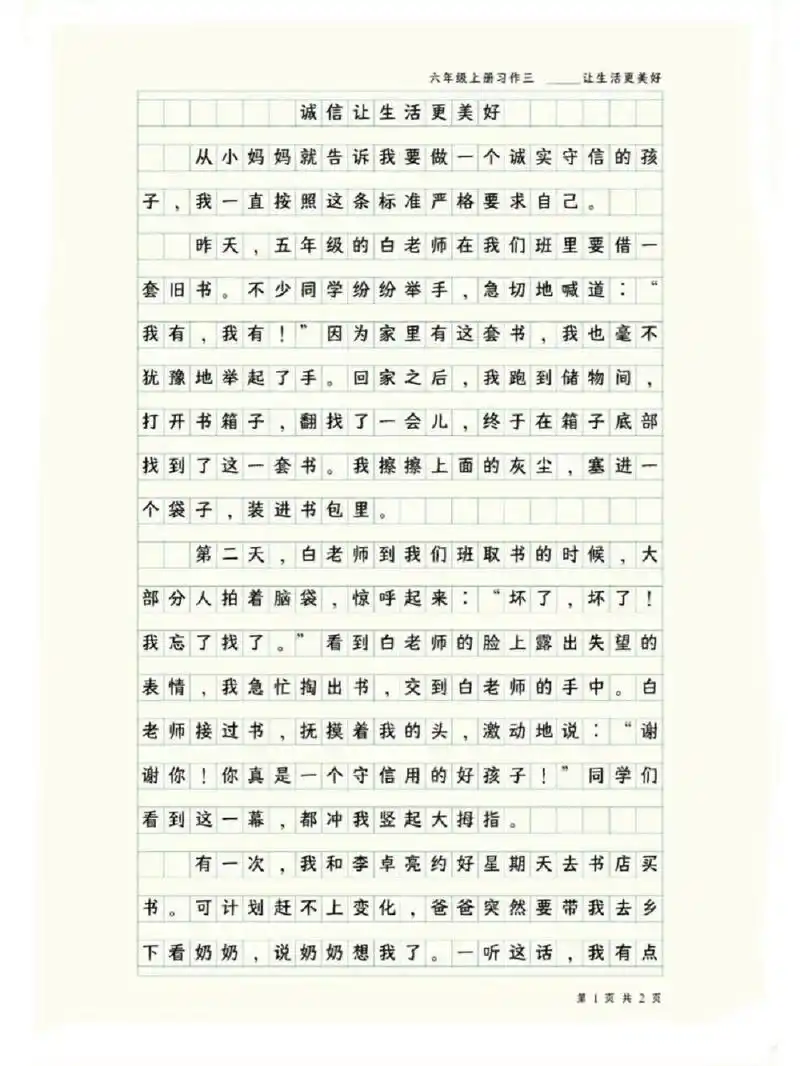 六年级上册习作三 _____让生活更美好
诚信让生活更美好
从小妈妈就告诉我要做一个诚实守信的孩
子，我一直按照这条标准严格要求自己。
昨天，五年级的白老师在我们班里要借一
套旧书。不少同学纷纷举手，急切地喊道：“
我有，我有！”因为家里有这套书，我也毫不
犹豫地举起了手。回家之后，我跑到储物间，
打开书箱子，翻找了一会儿，终于在箱子底部
找到了这一套书。我擦擦上面的灰尘，塞进一
个袋子，装进书包里。
第二天，白老师到我们班取书的时候，大
部分人拍着脑袋，惊呼起来：“坏了，坏了！
我忘了找了。”看到白老师的脸上露出失望的
表情，我急忙掏出书，交到白老师的手中。白
老师接过书，抚摸着我的头，激动地说：“谢
谢你！你真是一个守信用的好孩子！”同学们
看到这一幕，都冲我竖起大拇指。
有一次，我和李卓亮约好星期天去书店买
书。可计划赶不上变化，爸爸突然要带我去乡
下看奶奶，说奶奶想我了。一听这话，我有点
第 1 页 共 2 页